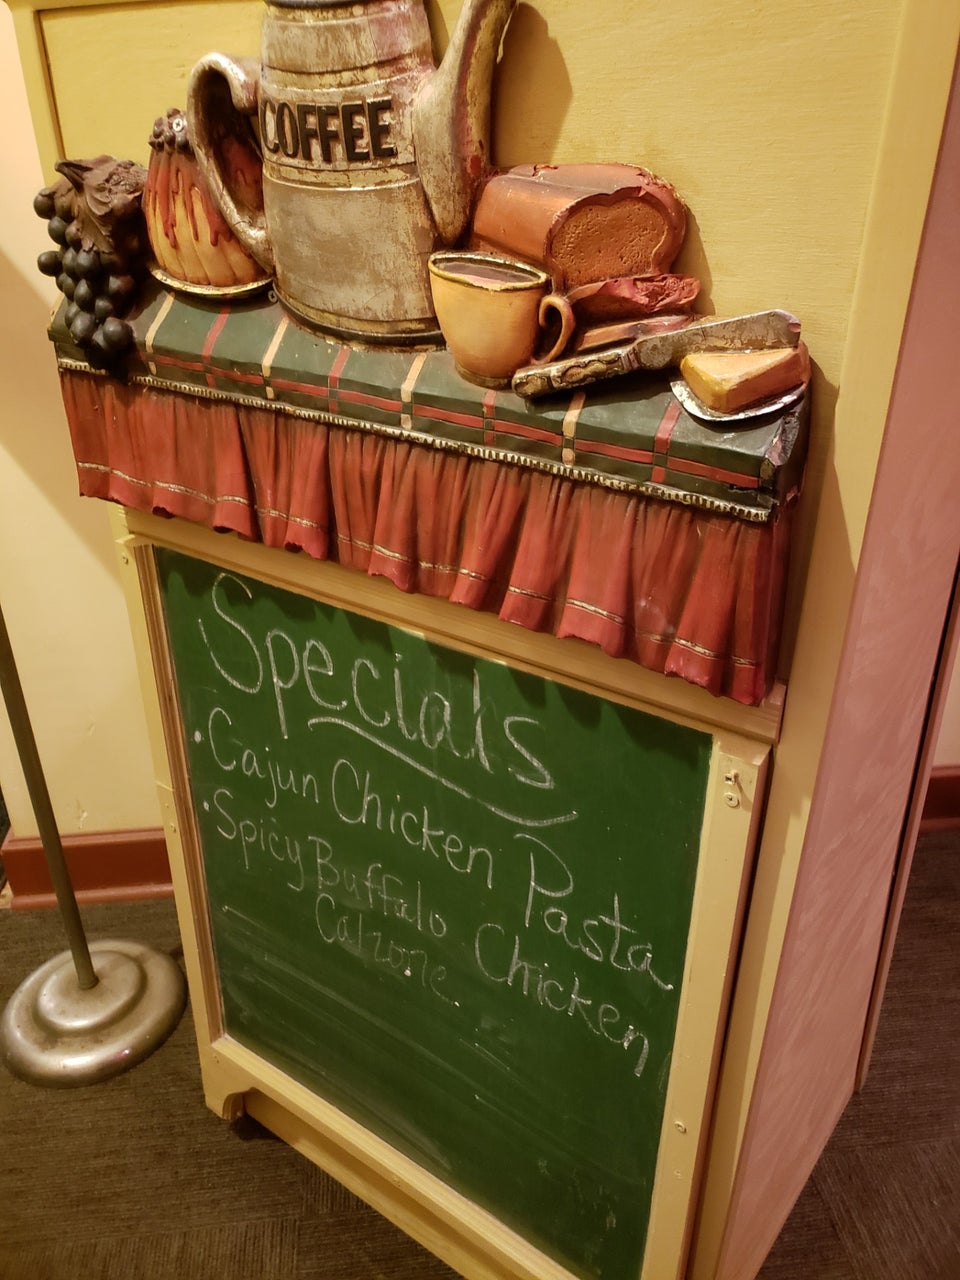 COFFEE
Specials
• Cajun Chicken Pasta
• Spicy Buffalo Chicken
Calzone